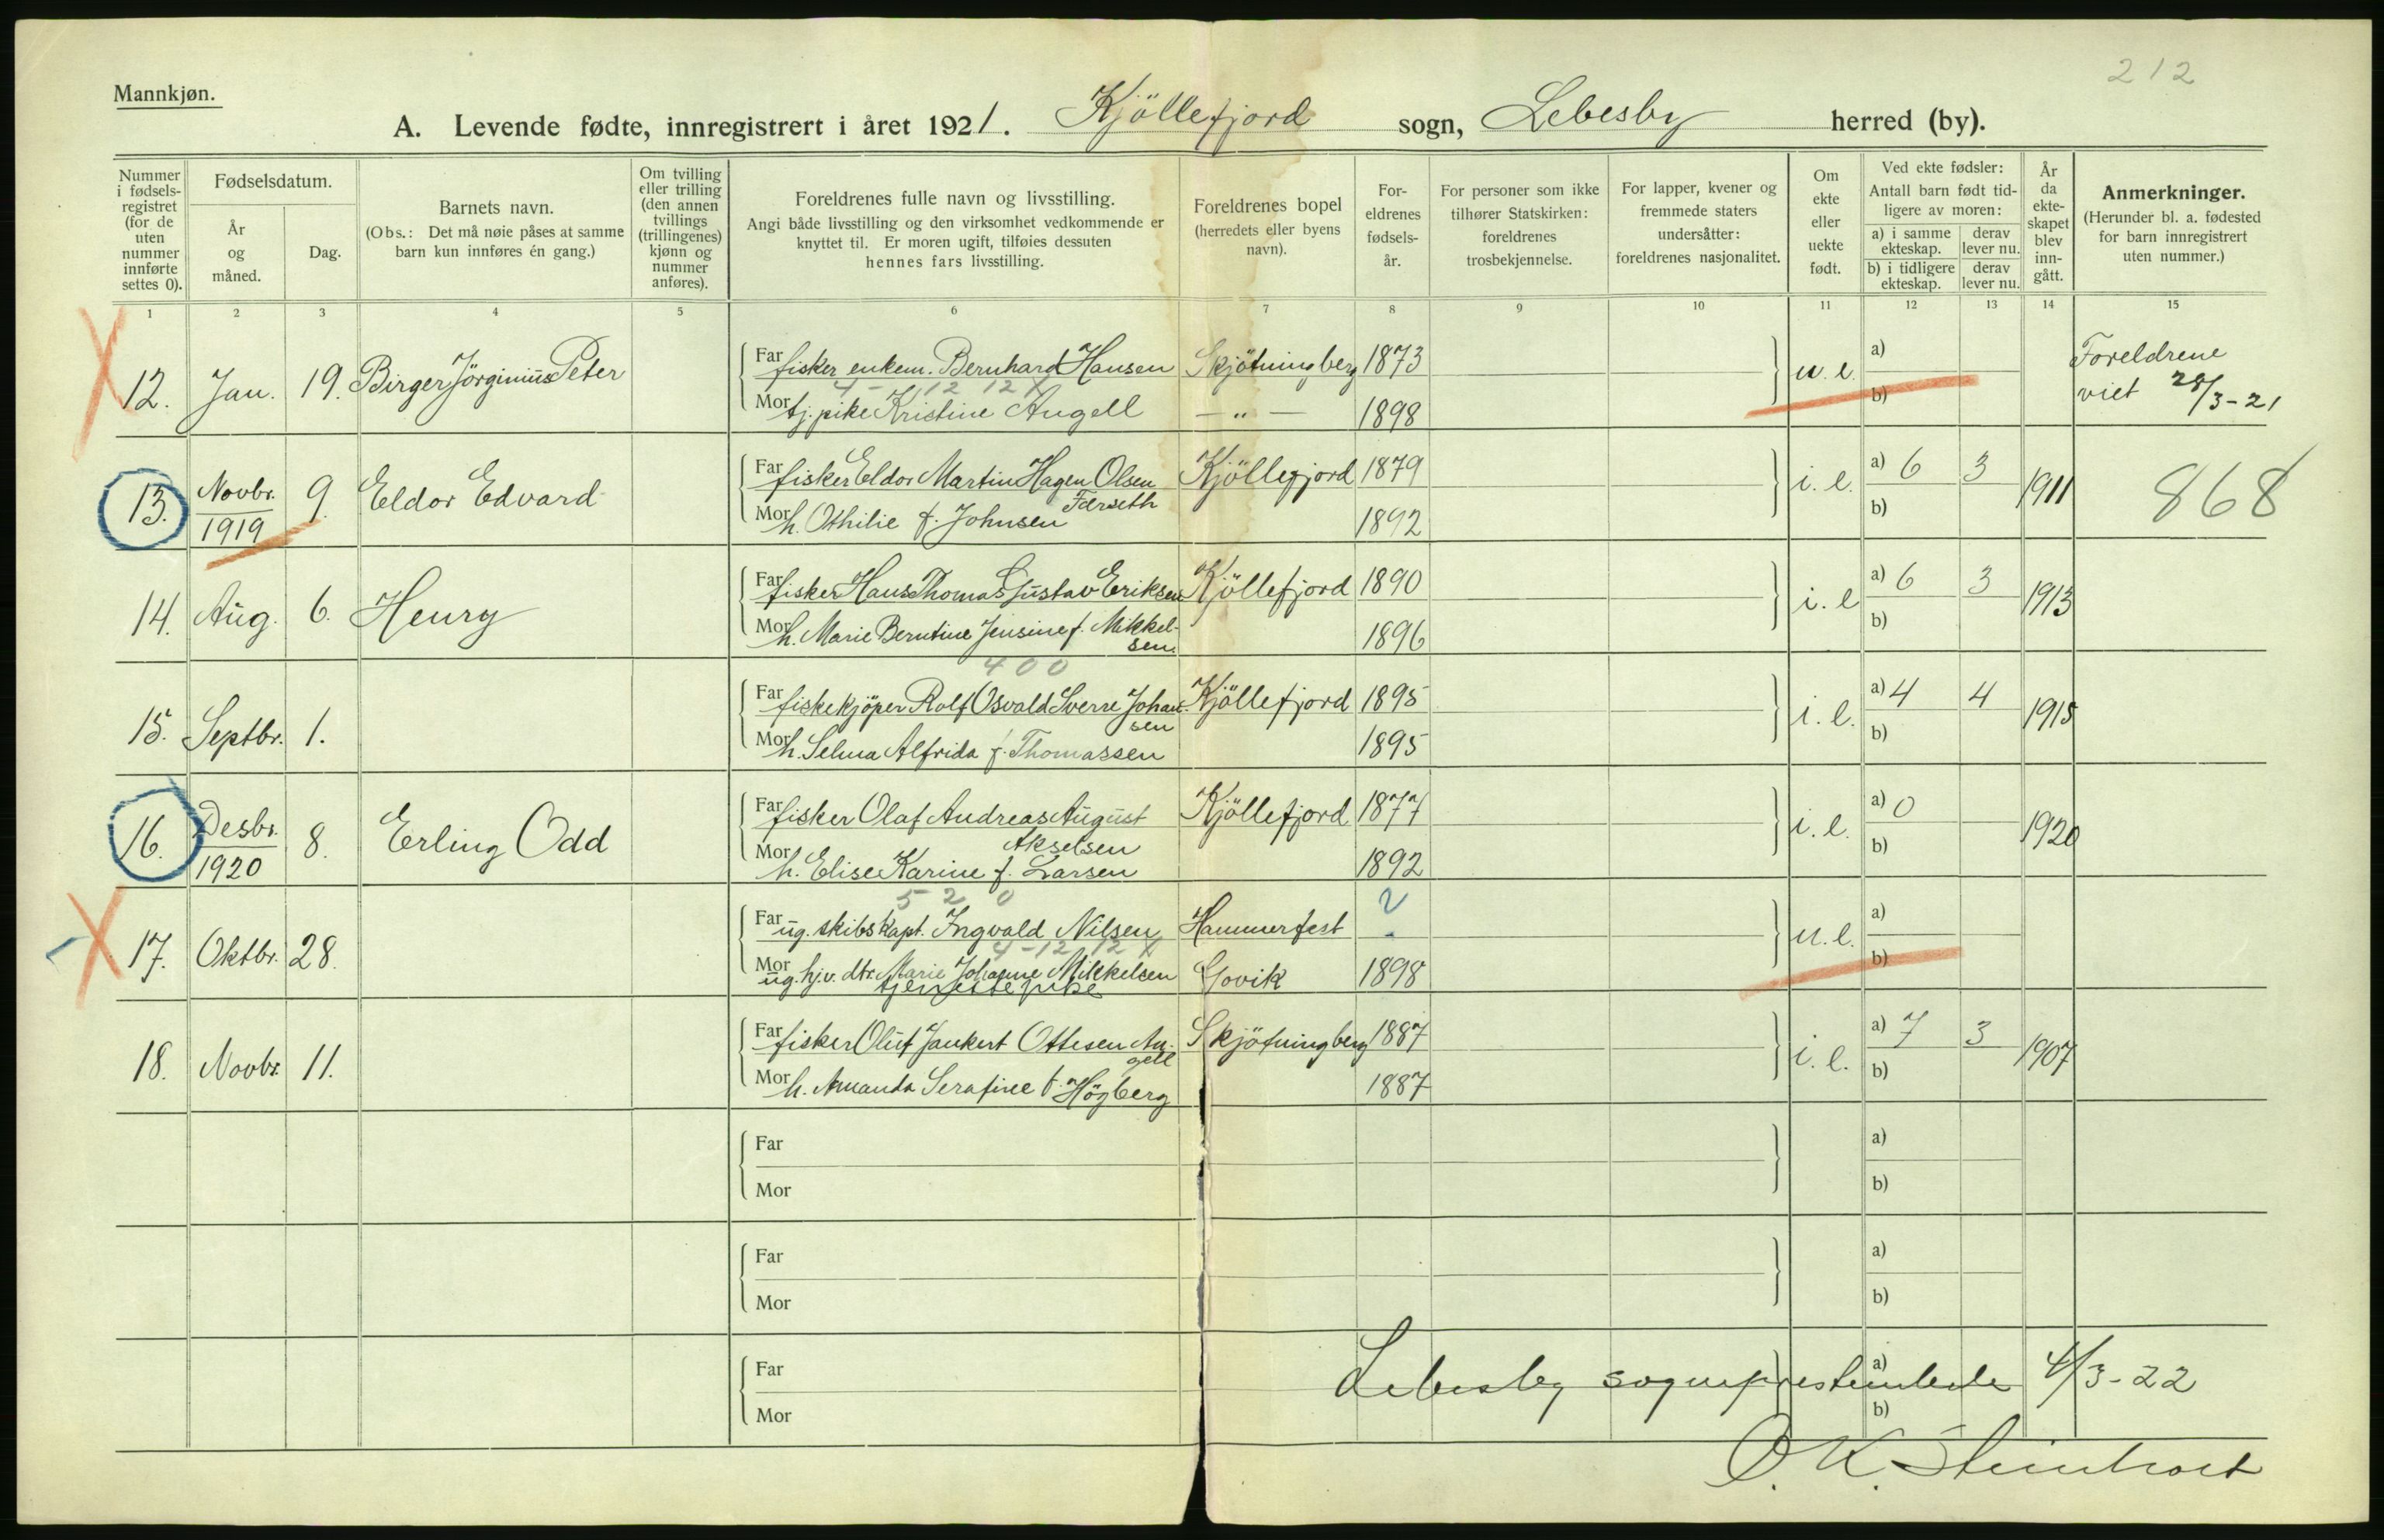 212
Mannkjøn.
A. Levende fødte, innregistrert i året 1921. Kjöllefjord sogn, Lebesby herred (by).
Nummer i fødsels-registret (for de uten nummer innførte settes 0).
Fødselsdatum.
År og måned.
Dag.
Barnets navn.
(Obs.: Det må nøie påses at samme barn kun innføres én gang.)
Om tvilling eller trilling (den annen tvillings (trillingenes) kjønn og nummer anføres).
Foreldrenes fulle navn og livsstilling.
Angi både livsstilling og den virksomhet vedkommende er knyttet til. Er moren ugift, tilføies dessuten hennes fars livsstilling.
Foreldrenes bopel (herredets eller byens navn).
For-eldrenes fødsels-år.
For personer som ikke tilhører Statskirken: foreldrenes trosbekjennelse.
For lapper, kvener og fremmede staters undersåtter: foreldrenes nasjonalitet.
Om ekte eller uekte født.
Ved ekte fødsler:
Antall barn født tid-ligere av moren:
a) i samme ekteskap. derav lever nu.
b) i tidligere ekteskap. derav lever nu.
År da ekte-skapet blev inn-gått.
Anmerkninger.
(Herunder bl. a. fødested for barn innregistrert uten nummer.)
1 2 3 4 5 6 7 8 9 10 11 12 13 14 15
12. Jan. 19. Birger Jörginius Peter
Far fisker enkem. Bernhard Hansen Skjötningberg 1873
4 - 12 12 X
Mor tj. pike Kristine Angell — „ — 1898
u. e. a) b)
Foreldrene viet 28/3-21
13. Novbr. 1919 9. Eldor Edvard
Far fisker Eldor Martin Hagen Olsen Færseth Kjöllefjord 1879
Mor h. Othilie f. Johnsen 1892
i. e. a) 6 3 b) 1911
868
14. Aug. 6. Henry
Far fisker Hans Thomas Gustav Eriksen Kjöllefjord 1890
Mor h. Marie Berntine Jensine f. Mikkel-sen. 1896
i. e a) 6 3 b) 1913
400
15. Septbr. 1.
Far fiskekjöper Rolf Osvald Sverre Johan-sen Kjöllefjord 1895
Mor h. Selma Alfrida f. Thomassen 1895
i. e. a) 4 4 b) 1915
16. Desbr. 1920 8. Erling Odd
Far fisker Olaf Andreas August Akselsen Kjöllefjord 1877
Mor h. Elise Karine f. Larsen 1892
i. e. a) 0 b) 1920
5 2 0
17. Oktbr. 28.
Far ug. skibskapt. Ingvald Nilsen Hammerfest ?
4 - 12 12 X
Mor ug. hjv. dtr. Marie Johanne Mikkelsen Govik 1898
tjenestepike
u. e. a) b)
18. Novbr. 11.
Far fisker Oluf Jankert Ottesen An-gell Skjötningberg 1887
Mor h. Amanda Serafine f. Högberg 1887
i. e. a) 7 3 b) 1907
Far
Mor
a)
b)
Far
Mor
a)
b)
Far
Mor
a)
b)
Lebesby sogneprestembede 4/3-22
O. K. Steinholt